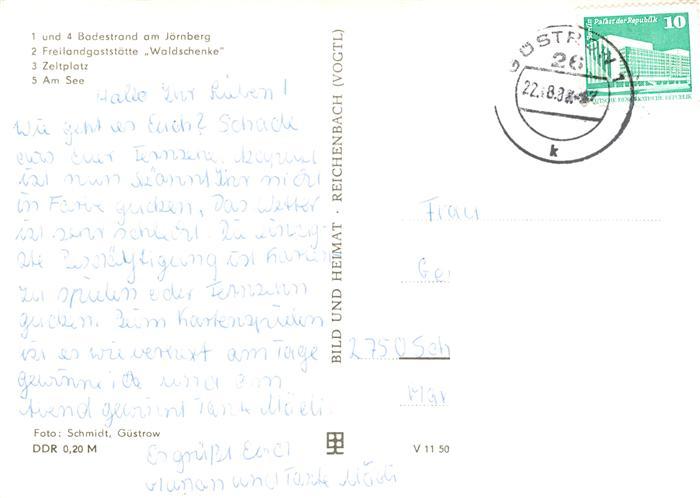 1 und 4 Badestrand am Jörnberg
2 Freilandgaststätte „Waldschenke"
3 Zeltplatz
5 Am See
Hallo Ihr Lieben!
Wie geht es Euch? Schade
das Euer Fernseh.
ist nun könnt Ihr nicht
in Farbe gucken. Das Wetter
ist sehr schlecht. Die einzig-
ste Beschäftigung ist Karten
zu spielen oder Fernsehn
gucken. Beim Kartenspielen
ist es wie verext am Tage
gewinne ich und am
Abend gewinnt Tante Mädi.
Es grüßt Euch
und Tante Mädi
Foto: Schmidt, Güstrow
DDR 0,20 M
V 11 50
BILD UND HEIMAT · REICHENBACH (VOGTL)
GÜSTROW 1
26
22.-8.8
k
Palast der Republik
10
DEUTSCHE DEMOKRATISCHE REPUBLIK
Frau
Ge
2750 Sch